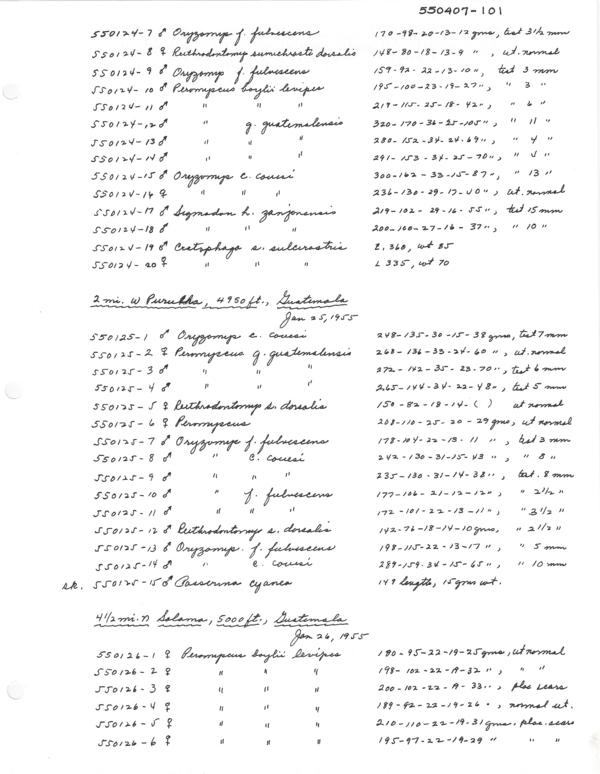 550407-101
550124-7 ♂ Oryzomys f. fulvescens 170-98-20-13-12 gms, test 3 1/2 mm
550124-8 ♀ Reithrodontomys sumichrasti dorsalis 148-80-18-13-9 ", ut. normal
550124-9 ♂ Oryzomys f. fulvescens 159-92-22-13-10 ", test 3 mm
550124-10 ♂ Peromyscus boylii levipes 195-100-23-19-27 ", " 3 "
550124-11 ♂ " " " 219-115-25-18-42 ", " 6 "
550124-12 ♂ " g. guatemalensis 320-170-36-25-105 ", " 11 "
550124-13 ♂ " " " 280-152-34-24-69 ", " 4 "
550124-14 ♂ " " " 291-153-34-25-70 ", " 5 "
550124-15 ♂ Oryzomys c. couesi 300-162-33-15-87 ", " 13 "
550124-16 ♀ " " " 236-130-29-17-40 ", ut. normal
550124-17 ♂ Sigmodon h. zanjonensis 219-102-29-16-55 ", test 15 mm
550124-18 ♂ " " " 200-100-27-16-37 ", " 10 "
550124-19 ♂ Crotophaga s. sulcirostris L. 360, wt 85
550124-20 ♀ " " " L 335, wt 70
2 mi. W Purulha, 4950 ft., Guatemala
Jan 25, 1955
550125-1 ♂ Oryzomys c. couesi 248-135-30-15-38 gms, test 7 mm
550125-2 ♀ Peromyscus g. guatemalensis 268-136-33-24-60 ", ut. normal
550125-3 ♂ " " " 272-142-35-23-70 ", test 6 mm
550125-4 ♂ " " " 265-144-34-22-48 ", test 5 mm
550125-5 ♀ Reithrodontomys s. dorsalis 150-82-18-14-( ) ut normal
550125-6 ♀ Peromyscus 208-110-25-20-29 gms, ut normal
550125-7 ♂ Oryzomys f. fulvescens 178-104-22-13-11 ", test 3 mm
550125-8 ♂ " c. couesi 242-130-31-15-43 ", " 8 "
550125-9 ♂ " " " 235-130-31-14-38 ", test. 8 mm
550125-10 ♂ " f. fulvescens 177-106-21-12-12 ", " 2 1/2 "
550125-11 ♂ " " " 172-101-22-13-11 ", " 3 1/2 "
550125-12 ♂ Reithrodontomys s. dorsalis 142-76-18-14-10 gms, " 2 1/2 "
550125-13 ♂ Oryzomys f. fulvescens 198-115-22-13-17 ", " 5 mm
550125-14 ♂ " c. couesi 289-159-34-15-65 ", " 10 mm
sk. 550125-15 ♂ Passerina cyanea 149 length, 15 gms wt.
4 1/2 mi. N Salama, 5000 ft., Guatemala
Jan 26, 1955
550126-1 ♀ Peromyscus boylii levipes 180-95-22-19-25 gms, ut normal
550126-2 ♀ " " " 198-102-22-19-32 ", " "
550126-3 ♀ " " " 200-102-22-19-33 ", plac scars
550126-4 ♀ " " " 189-92-22-19-26 ", normal ut.
550126-5 ♀ " " " 210-110-22-19-31 gms, plac. scars
550126-6 ♀ " " " 195-97-22-19-29 " " "